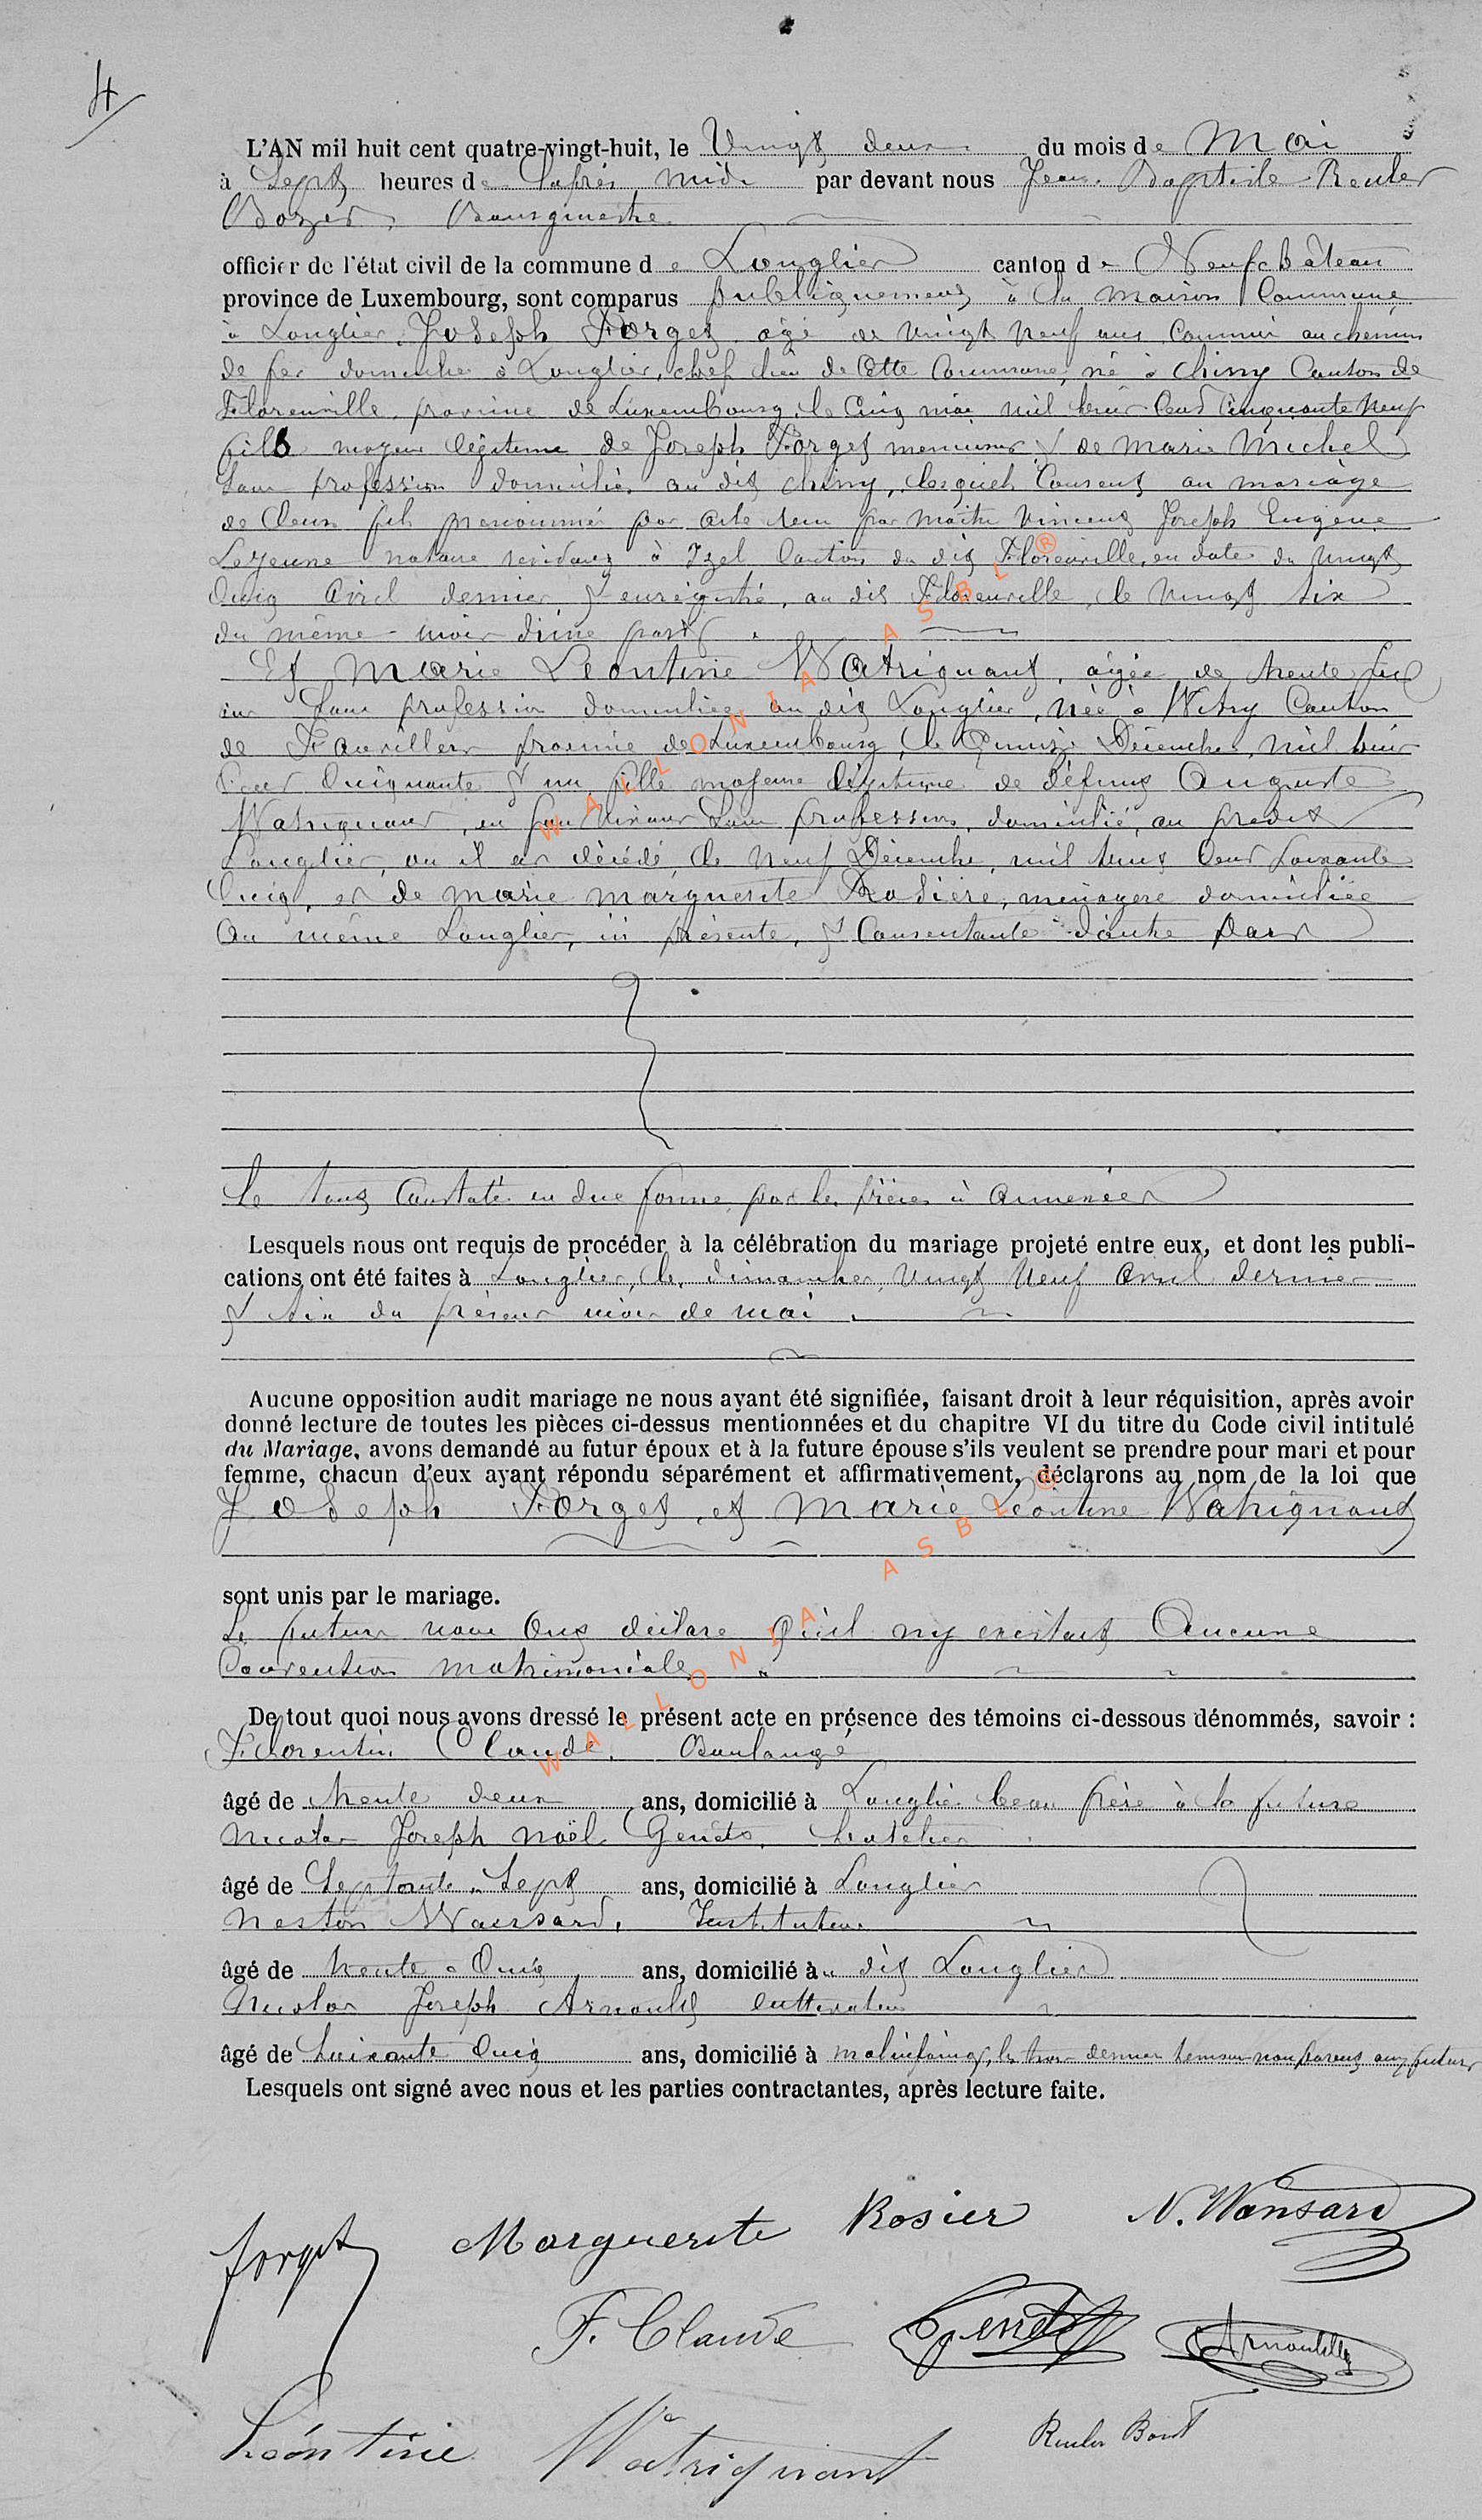 4
L'AN mil huit cent quatre-vingt-huit, le Vingt deux du mois de Mai
à Sept heures de l'après midi par devant nous Jean Baptiste Reuler
Bozet, Bourgmestre
officier de l'état civil de la commune de Longlier canton de Neufchâteau
province de Luxembourg, sont comparus publiquement à la maison Commune
à Longlier, Joseph Forget, âgé de vingt neuf ans, Commis au chemin
de fer domicilié à Longlier, chef lieu de Cette Commune, né à Chiny Canton de
Florenville, province de Luxembourg, le Cinq mai mil huit Cent Cinquante Neuf
fils majeur légitime de Joseph Forget menuisier & de Marie Michel
Sans profession domiciliés au dit Chiny, lesquels Consent au mariage
de leur fils prénommé par acte tenu par Maître Vincent Joseph Eugène
Lejeune notaire résidant à Izel Canton du dit Florenville, en date du vingt
Cinq Avril dernier & enrégistré, au dit Florenville, le Vingt Six
du même mois d'une part.
Et Marie Léontine Watrignant, âgée de trente Six
ans Sans profession domiciliée au dit Longlier, née à Witry Canton
de Fauvillers province de Luxembourg, le Quinze Décembre, mil huit
Cent Cinquante & un, fille majeure légitime de défunt Auguste
Watrignant, en son vivant Sans profession, domicilié, au prédit
Longlier, où il est décédé, le Neuf Décembre, mil huit Cent Soixante
Cinq, et de Marie Marguerite Rosière, ménagère domiciliée
Au même Longlier, ici présente, & Consentante d'autre Part
le tout Constaté en due forme, par les pièces ci annexées
Lesquels nous ont requis de procéder à la célébration du mariage projeté entre eux, et dont les publi-
cations ont été faites à Longlier, les dimanches, Vingt Neuf Avril dernier
& Six du présent mois de mai.
Aucune opposition audit mariage ne nous ayant été signifiée, faisant droit à leur réquisition, après avoir
donné lecture de toutes les pièces ci-dessus mentionnées et du chapitre VI du titre du Code civil intitulé
du Mariage, avons demandé au futur époux et à la future épouse s'ils veulent se prendre pour mari et pour
femme, chacun d'eux ayant répondu séparément et affirmativement, déclarons au nom de la loi que
Joseph Forget, et Marie Léontine Watrignant
sont unis par le mariage.
Le futur nous Ont déclaré Qu'il n'y existait Aucune
Convention matrimoniale.
De tout quoi nous avons dressé le présent acte en présence des témoins ci-dessous dénommés, savoir :
Florentin Claude, Boulangé
âgé de trente deux ans, domicilié à Longlier beau frère à la future
Nicolas Joseph Noël Gendt,
âgé de Septante Sept ans, domicilié à Longlier
Nestor Wansard, Instituteur
âgé de trente Cinq ans, domicilié àu dit Longlier
Nicolas Joseph Arnould cultivateur
âgé de Soixante Cinq ans, domicilié à Molinfaing, les trois derniers témoins non parents aux futurs
Lesquels ont signé avec nous et les parties contractantes, après lecture faite.
Forget Marguerite Rosier N. Wansard
F. Claude Gendt Arnould
Léontine Watrignant
WALLONIA ASBL ®
WALLONIA ASBL ®